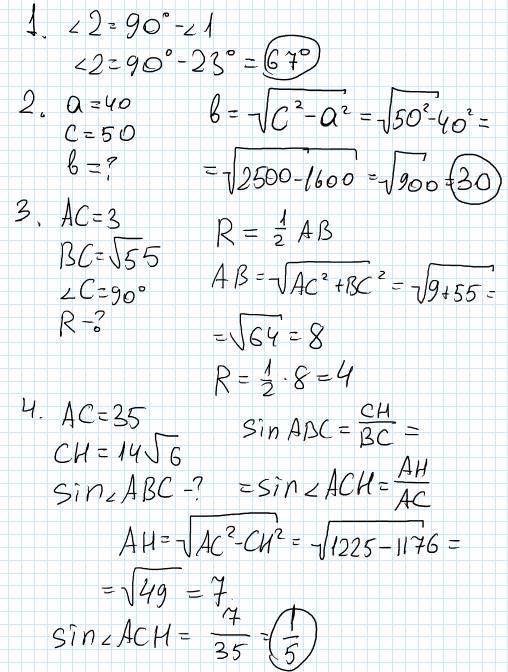 1. ∠2=90°-∠1
∠2=90°-23°=67°
2. a=40
c=50
b=?
b=√(c²-a²)=√(50²-40²)=
=√(2500-1600)=√900=30
3. AC=3
BC=√55
∠C=90°
R-?
R=1/2 AB
AB=√(AC²+BC²)=√(9+55)=
=√64=8
R=1/2·8=4
4. AC=35
CH=14√6
sin∠ABC-?
sin ABC=CH/BC=
=sin∠ACH=AH/AC
AH=√(AC²-CH²)=√(1225-1176)=
=√49=7
sin∠ACH=7/35=1/5